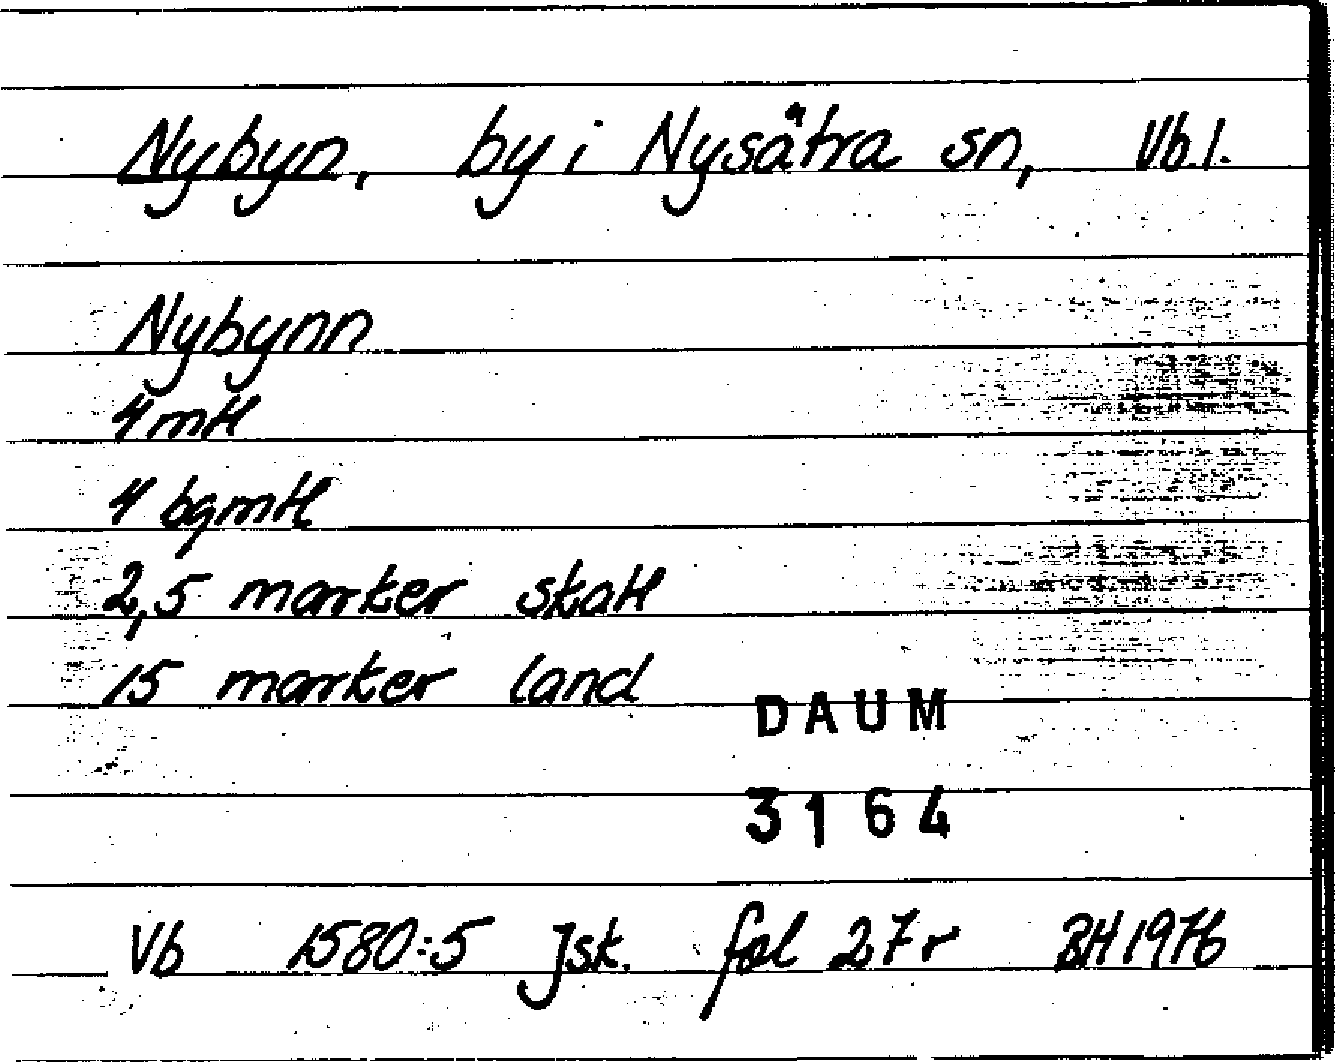 Nybyn, by i Nysätra sn, Vb.l.
Nybynn
4 mtl
4 bgmtl
2,5 marker skatt
15 marker land
DAUM
3164
Vb 1580:5 Jsk. fol 27r BH 1976